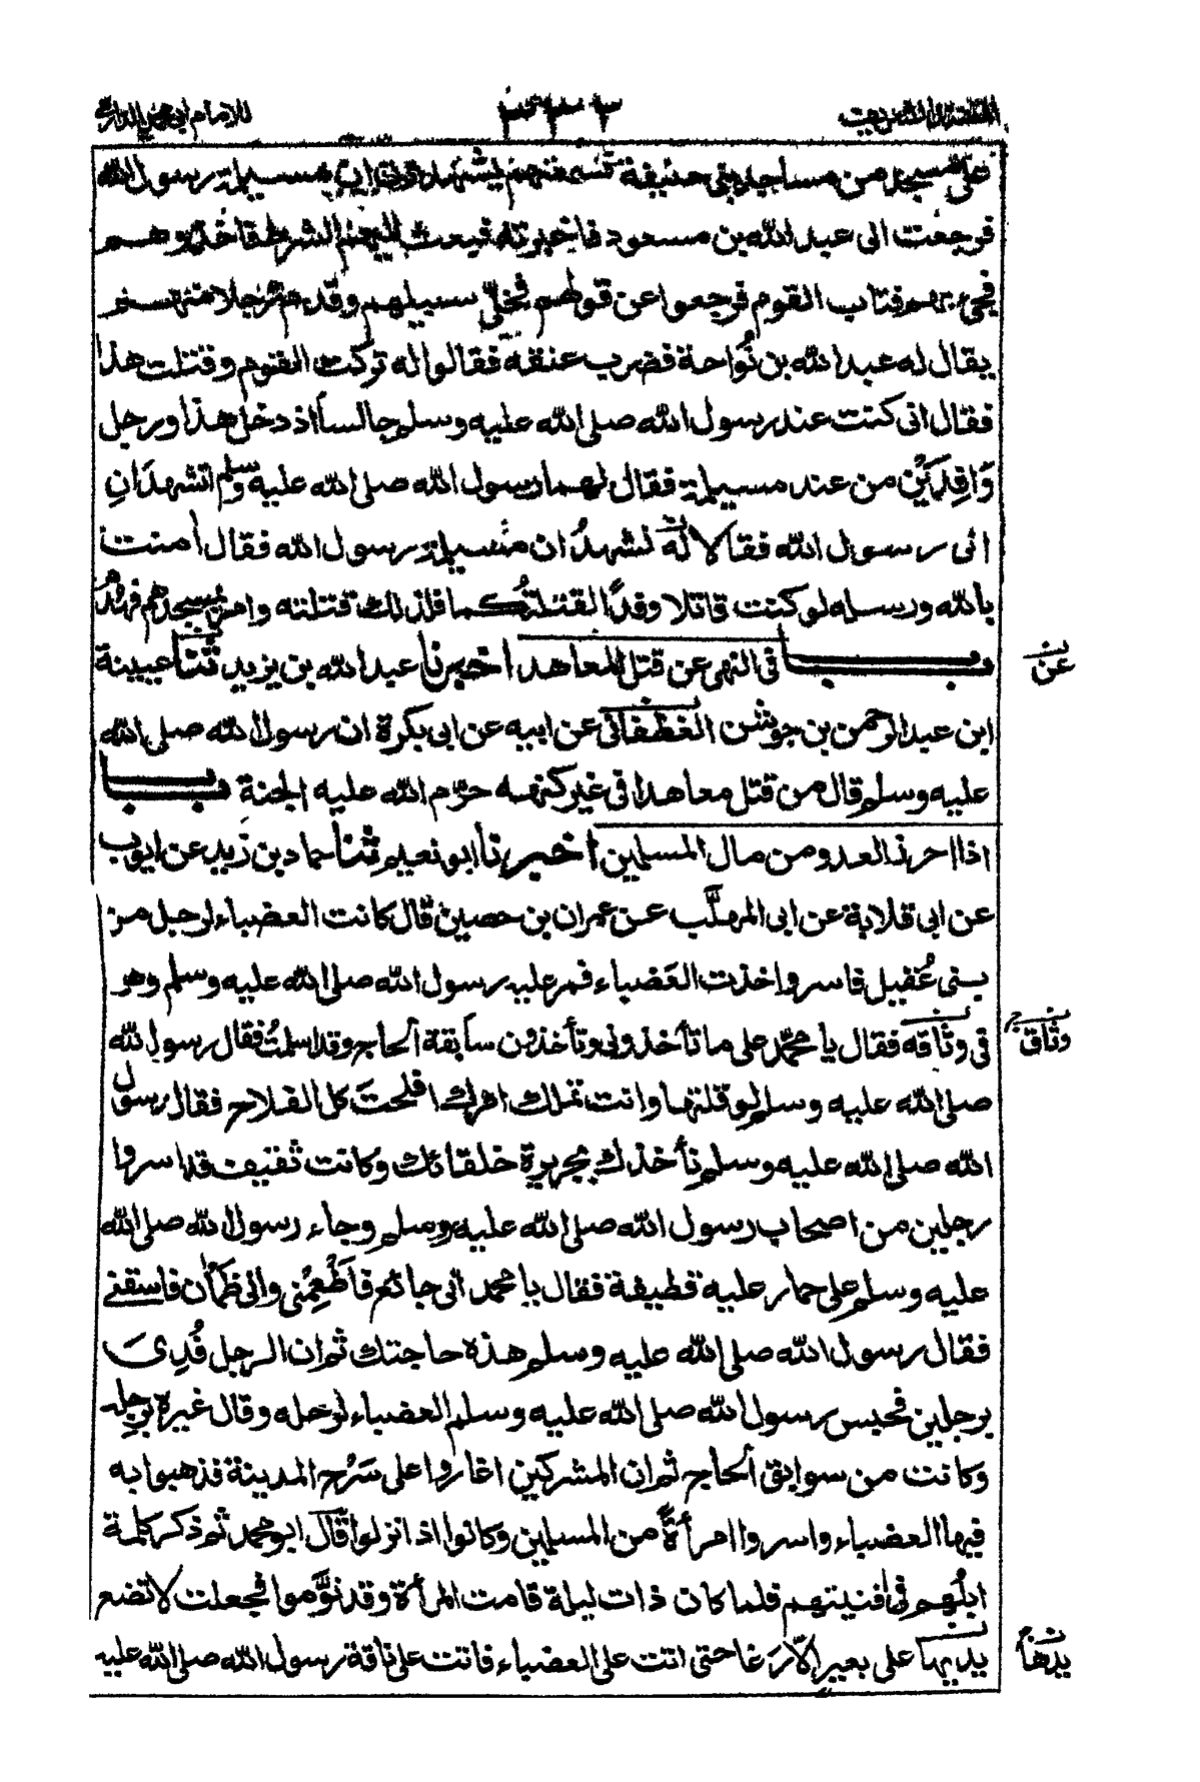 للامام ابی محمد الدارمی
علی مسجد من مساجد بنی حنیفة فسمعتهم يشهدون ان مسیلمة رسول الله
فرجعت الی عبد الله بن مسعود فاخبرته فبعث اليهم الشرط فاخذوهم
فجیء بهم فتاب القوم فرجعوا عن قولهم فخلّی سبيلهم وقدم رجلا منهم
يقال له عبد الله بن نُوَّاحة فضرب عنقه فقالوا له تركت القوم وقتلت هذا
فقال انی كنت عند رسول الله صلی الله عليه وسلم جالساً اذ دخل هذا ورجل
وَافِدَيْنِ من عند مسیلمة فقال لهما رسول الله صلی الله عليه وسلم اتشهدَانِ
انی رسول الله فقالا له نشهدُ ان مسیلمة رسول الله فقال اٰمنت
بالله ورسله لو كنت قاتلا وفدًا لقتلتُكما فلذلك قتلته وامر بمسجدهم فهُدم
بـاب فی النهی عن قتل المعاهد اخبرنا عبد الله بن يزيد ثنا عیينة
عن
ابن عبد الرحمن بن جوشن الغطفانی عن ابیه عن ابی بكرة ان رسول الله صلی الله
عليه وسلم قال من قتل معاهدا فی غير كنهه حرّم الله عليه الجنة بـاب
اذا احرز العدو من مال المسلمين اخبرنا ابو نعيم ثنا حماد بن زيد عن ايوب
عن ابی قلابة عن ابی المهلَّب عن عمران بن حصين قال كانت العضباء لرجل من
بنی عُقيل فاسر واخذت العَضباء فمر عليه رسول الله صلی الله عليه وسلم وهو
فی وثاقه فقال يا محمّد علی ما تأخذونی وتأخذون سابقة الحاج وقد اسلمتُ فقال رسول الله
وثاق
صلی الله عليه وسلم لو قلتها وانت تملك امرك افلحتَ كل الفلاح فقال رسول
الله صلی الله عليه وسلم نأخذك بجريرة خلفائك وكانت ثقيف قد اسروا
رجلين من اصحاب رسول الله صلی الله عليه وسلم وجاء رسول الله صلی الله
عليه وسلم علی حمار عليه قطيفة فقال يا محمد انی جائع فاَطْعِمْنی وانی ظمأن فاسقنی
فقال رسول الله صلی الله عليه وسلم هذه حاجتك ثم ان الرجل فُدِیَ
برجلين فحبس رسول الله صلی الله عليه وسلم العضباء لرحله وقال غيره
وكانت من سوابق الحاج ثم ان المشركين اغاروا علی سَرْح المدينة فذهبوا به
فيها العضباء واسروا امرأةً من المسلمين وكانوا اذا نزلوا قال ابو محمد ثم ذكر كلمة
ابلُهم فی افنيتهم فلما كان ذات ليلة قامت المرأة وقد نوَّموا فجعلت لا تضع
يديها علی بعير الّا رَغا حتی اتت علی العضباء فاتت علی ناقة رسول الله صلی الله عليه
يدها